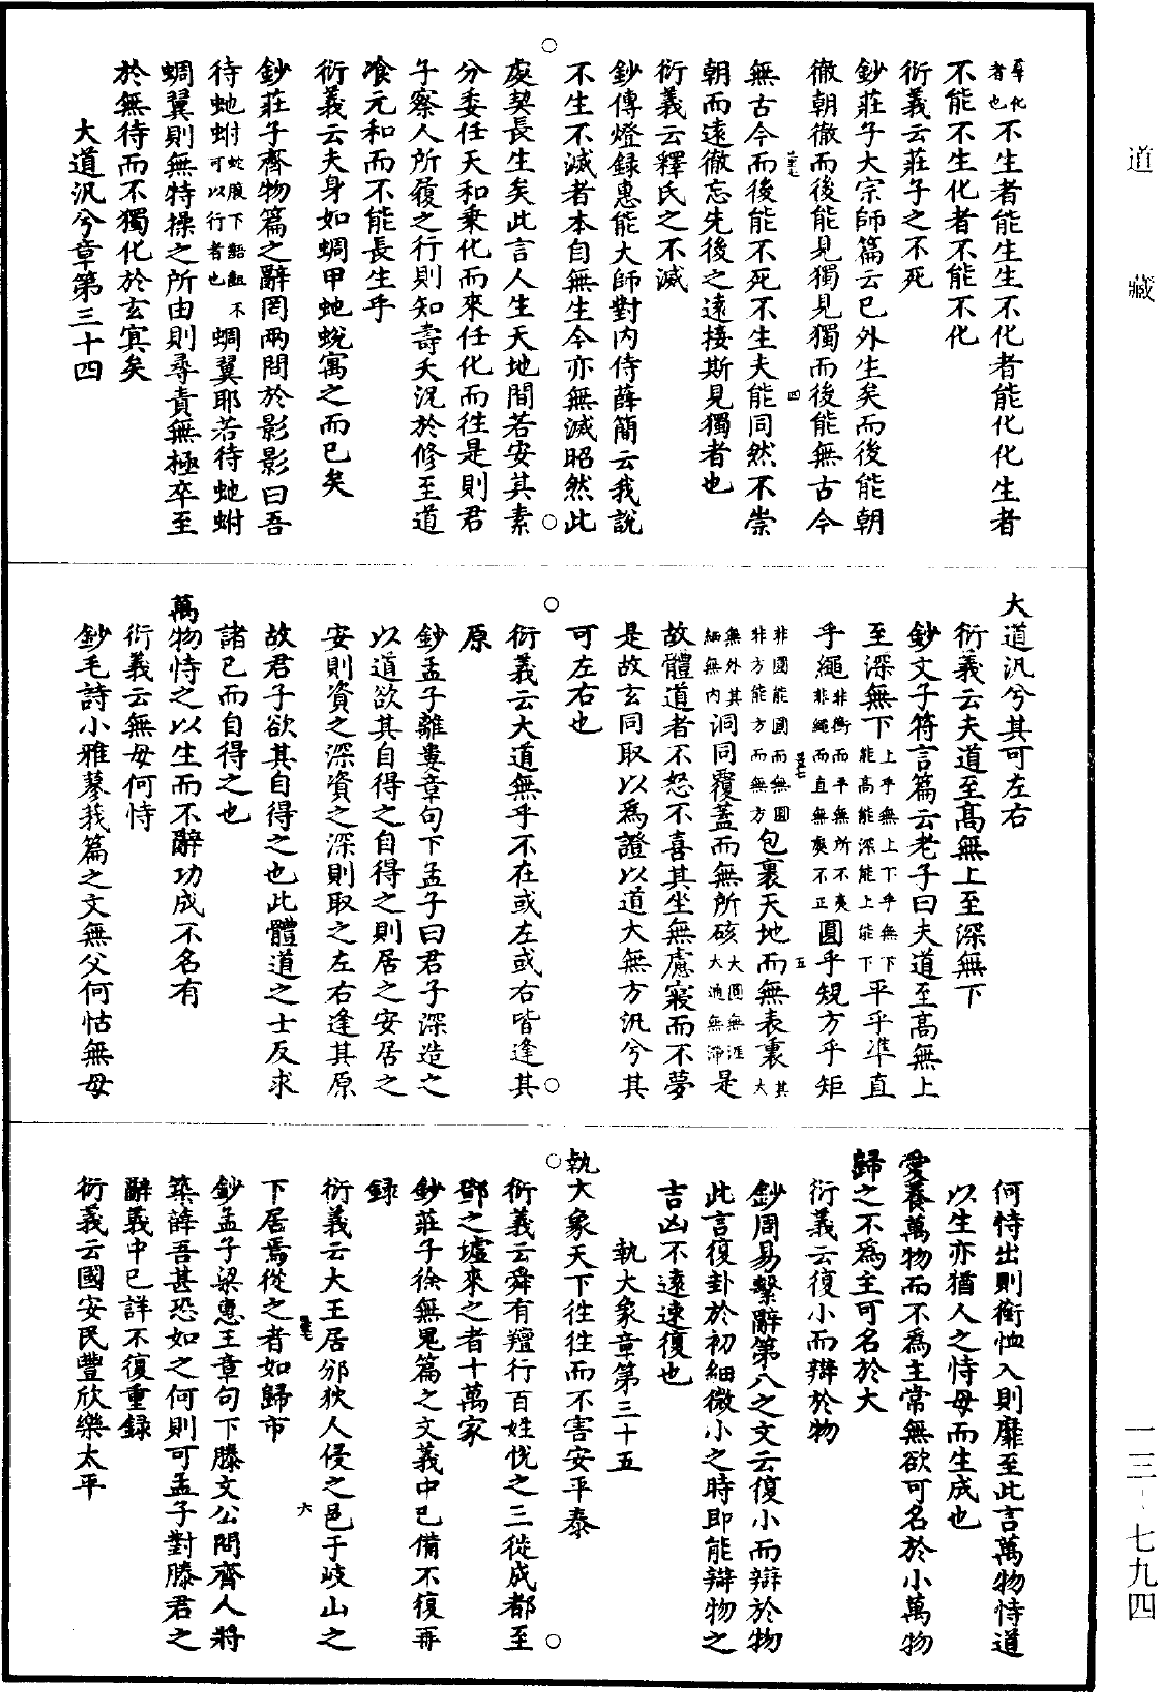 羣化者也不生者能生生不化者能化化生者
不能不生化者不能不化
衍義云莊子之不死
鈔莊子大宗師篇云已外生矣而後能朝
徹朝徹而後能見獨見獨而後能無古今
無古今而後能不死不生夫能同然不崇
朝而遠徹忘先後之遠接斯見獨者也
衍義云釋氏之不滅
鈔傳燈録惠能大師對内侍薛簡云我說
不生不滅者本自無生今亦無滅昭然此
處契長生矣此言人生天地間若安其素
分委任天和乗化而來任化而徃是則君
子察人所履之行則知壽夭況於修至道
飡元和而不能長生乎
衍義云夫身如蜩甲虵蛻寓之而已矣
鈔莊子齊物篇之辭罔兩問於影影曰吾
待虵蚹蛇腹下齟齬可以行者也不蜩翼耶若待虵蚹
蜩翼則無特操之所由則尋責無極卒至
於無待而不獨化於玄㝠矣
大道汎兮章第三十四
大道汎兮其可左右
衍義云夫道至髙無上至深無下
鈔文子符言篇云老子曰夫道至髙無上
至深無下上乎無上下乎無下能髙能深能上能下平乎準直
乎繩非衡而平無所不夷非繩而直無爽不正圓乎規方乎矩
非圓能圓而無圓非方能方而無方包裹天地而無表裏其大
無外其細無内洞同覆蓋而無所硋大圓無涯大通無滯是
故體道者不怒不喜其坐無慮寢而不夢
是故玄同取以爲證以道大無方汎兮其
可左右也
衍義云大道無乎不在或左或右皆逢其
原
鈔孟子離婁章句下孟子曰君子深造之
以道欲其自得之自得之則居之安居之
安則資之深資之深則取之左右逢其原
故君子欲其自得之也此體道之士反求
諸已而自得之也
萬物恃之以生而不辭功成不名有
衍義云無母何恃
鈔毛詩小雅蓼莪篇之文無父何怙無母
何恃出則銜恤入則靡至此言萬物恃道
以生亦猶人之恃母而生成也
愛養萬物而不爲主常無欲可名於小萬物
歸之不爲主可名於大
衍義云復小而辯於物
鈔周易繫辭第八之文云復小而辯於物
此言復卦於初細微小之時即能辯物之
吉凶不遠速復也
執大象章第三十五
執大象天下徃徃而不害安平泰
衍義云舜有羶行百姓悅之三徙成都至
鄧之墟來之者十萬家
鈔莊子徐無鬼篇之文義中已備不復再
録
衍義云大王居邠狄人侵之邑于岐山之
下居焉從之者如歸市
鈔孟子梁惠王章句下滕文公問齊人將
築薛吾甚恐如之何則可孟子對滕君之
辭義中已詳不復重録
衍義云國安民豐欣樂太平
四
五
六
道藏
一三-七九四